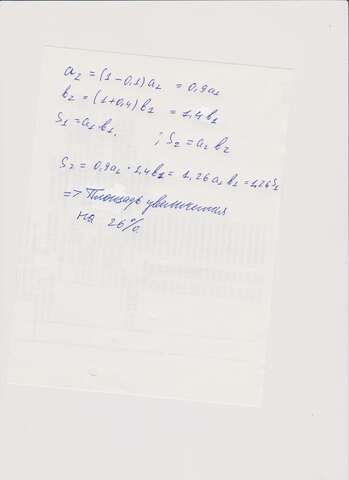 a₂ = (1 - 0,1)a₁ = 0,9a₁
в₂ = (1+0,4)в₁ = 1,4в₁
S₁ = a₁в₁. ; S₂ = a₂в₂
S₂ = 0,9a₁ · 1,4в₁ = 1,26a₁в₁ = 1,26S₁
=> Площадь увеличится
на 26%.